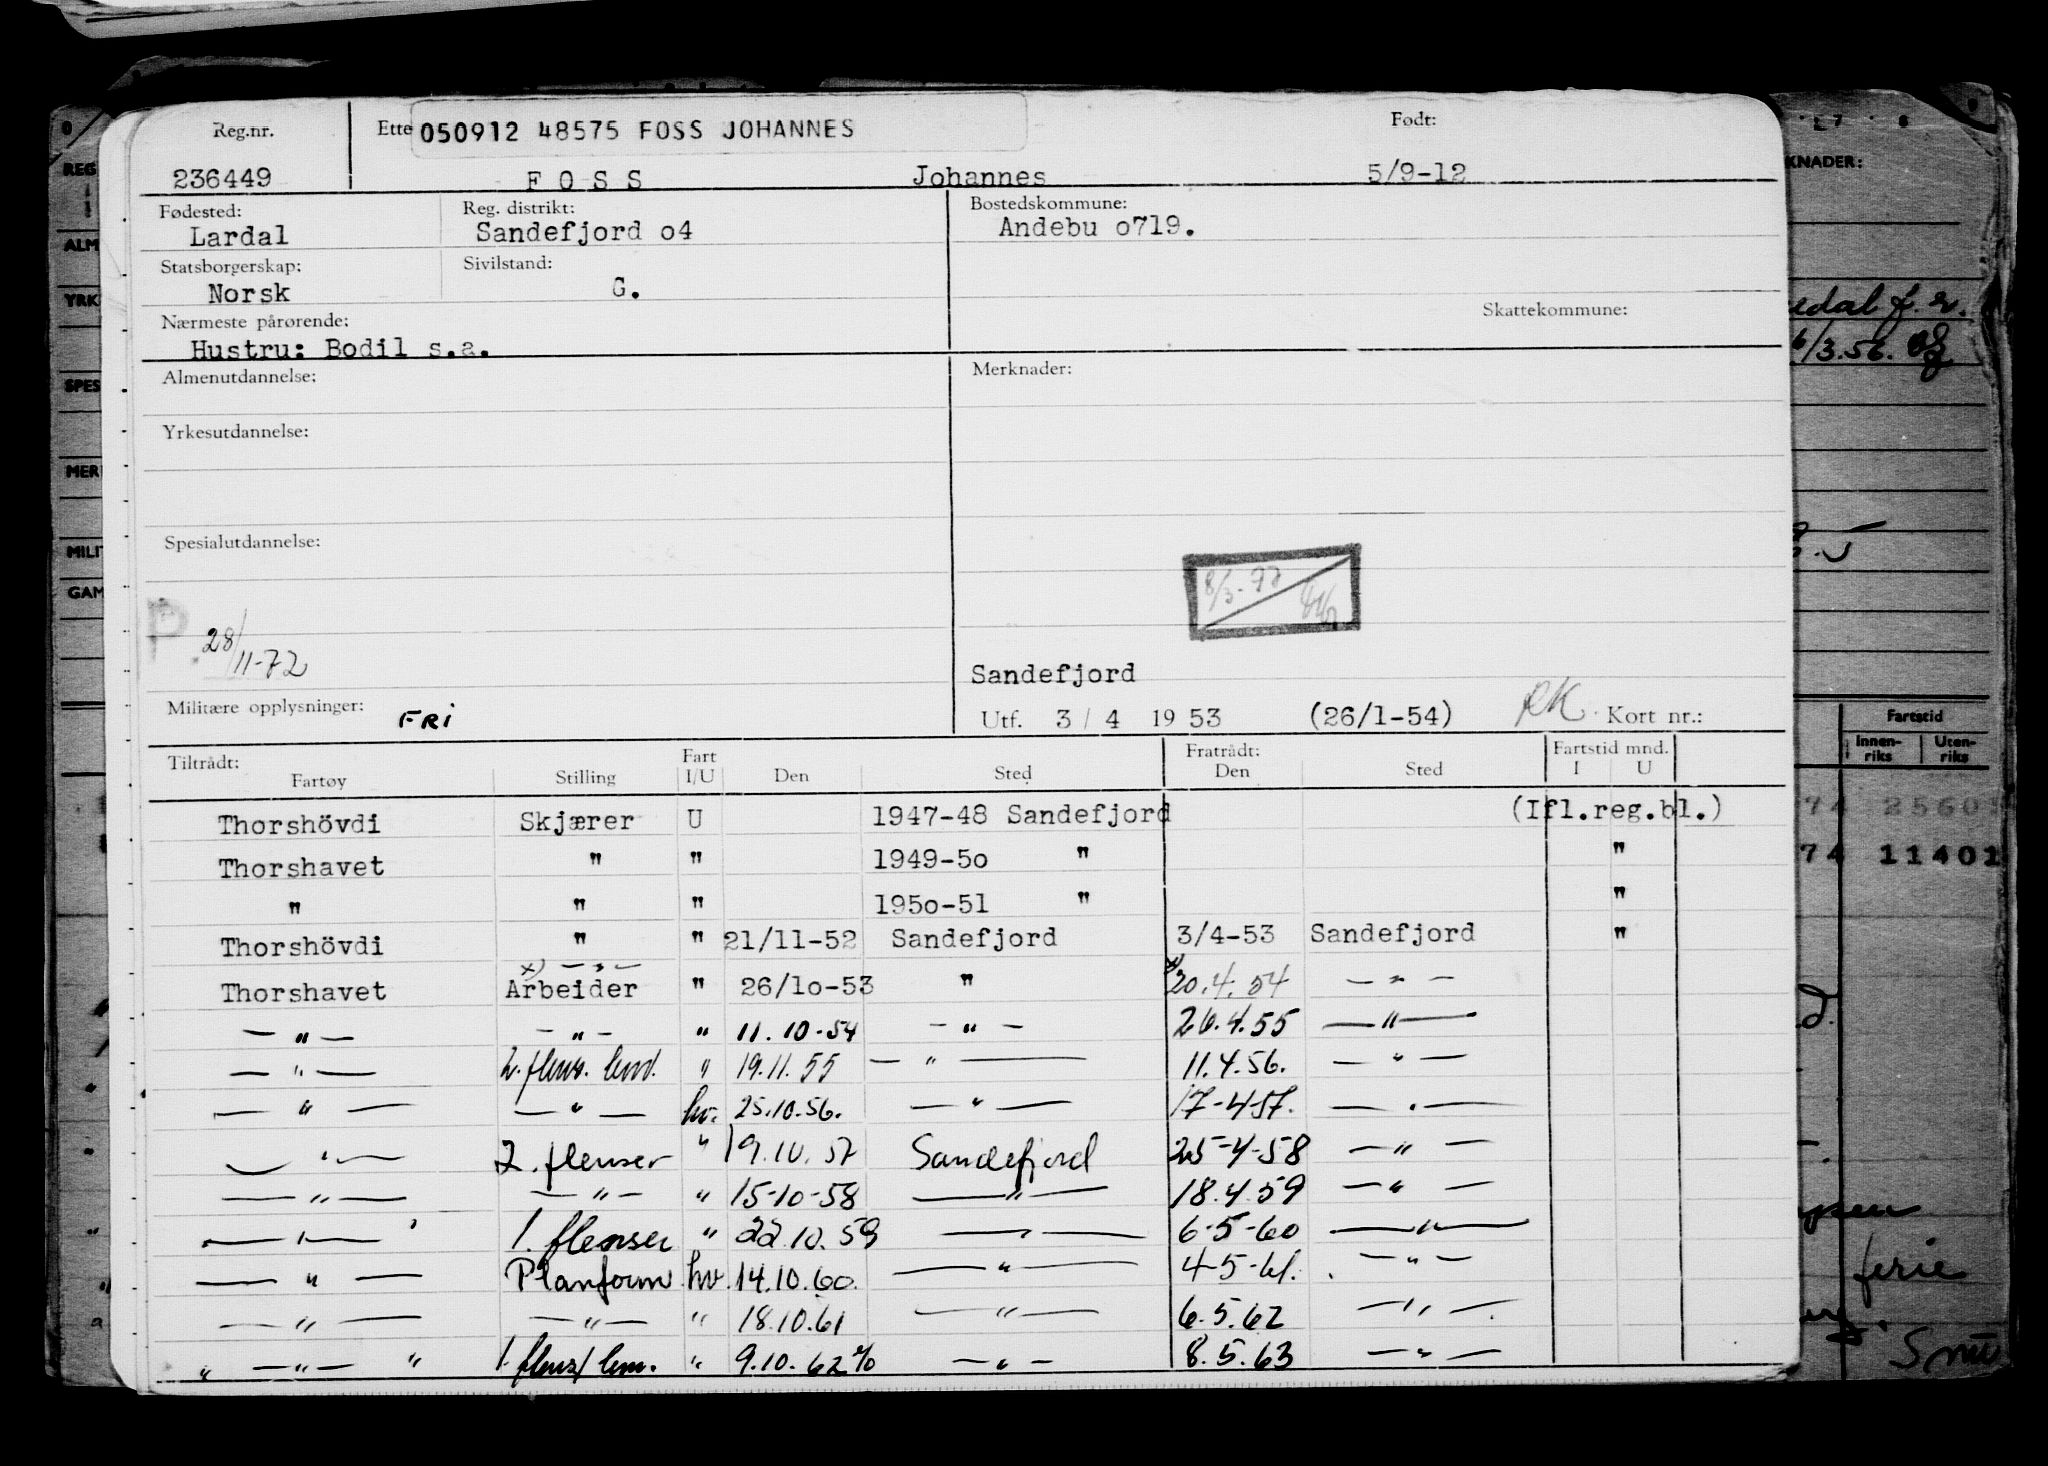 Reg.nr. Ette 050912 48575 FOSS JOHANNES Født:
236449 F O S S Johannes 5/9-12
Fødested: Reg. distrikt: Bostedskommune:
Lardal Sandefjord o4 Andebu o719.
Statsborgerskap: Sivilstand:
Norsk G.
Nærmeste pårørende: Skattekommune:
Hustru: Bodil s.a.
Almenutdannelse: Merknader:
Yrkesutdannelse:
Spesialutdannelse:
28/11-72
Sandefjord
Militære opplysninger: FRI Utf. 3 / 4 19 53 (26/1-54) Kort nr.:
Tiltrådt: Fart Fratrådt: Fartstid mnd.
Fartøy Stilling I/U Den Sted Den Sted I U
Thorshövdi Skjærer U 1947-48 Sandefjord (Ifl.reg.bl.)
Thorshavet " " 1949-5o " "
" " " 195o-51 " "
Thorshövdi " " 21/11-52 Sandefjord 3/4-53 Sandefjord "
x) — " —
Thorshavet Arbeider " 26/1o-53 " x) 20.4.54 — " —
— " — — " — " 11.10-54 — " — 26.4.55 — " —
— " — 2. flens. lem. " 19.11.55 — " — 11.4.56. — " —
— " — — " — hv. 25.10.56. — " — 17-4-57. — " —
— " — 2. flenser " 19.10.57 Sandefjord 25-4-58 — " —
— " — — " — " 15-10-58 — " — 18.4.59 — " —
— " — 1. flenser " 22.10.59 — " — 6-5-60 — " —
— " — Planform. hv. 14.10.60. — " — 4-5-61. — " —
— " — — " — " 18.10.61 — " — 6.5.62 — " —
" — " — " 1. flens/lem. " 9.10.62 — " — 8.5.63 — " —
REG
ALM
YRK
SPES
MER
MILIT
GAM
KNADER:
6/3.56.
Fartstid
Innen-riks Uten-riks
74 2560
74 11401
ferie